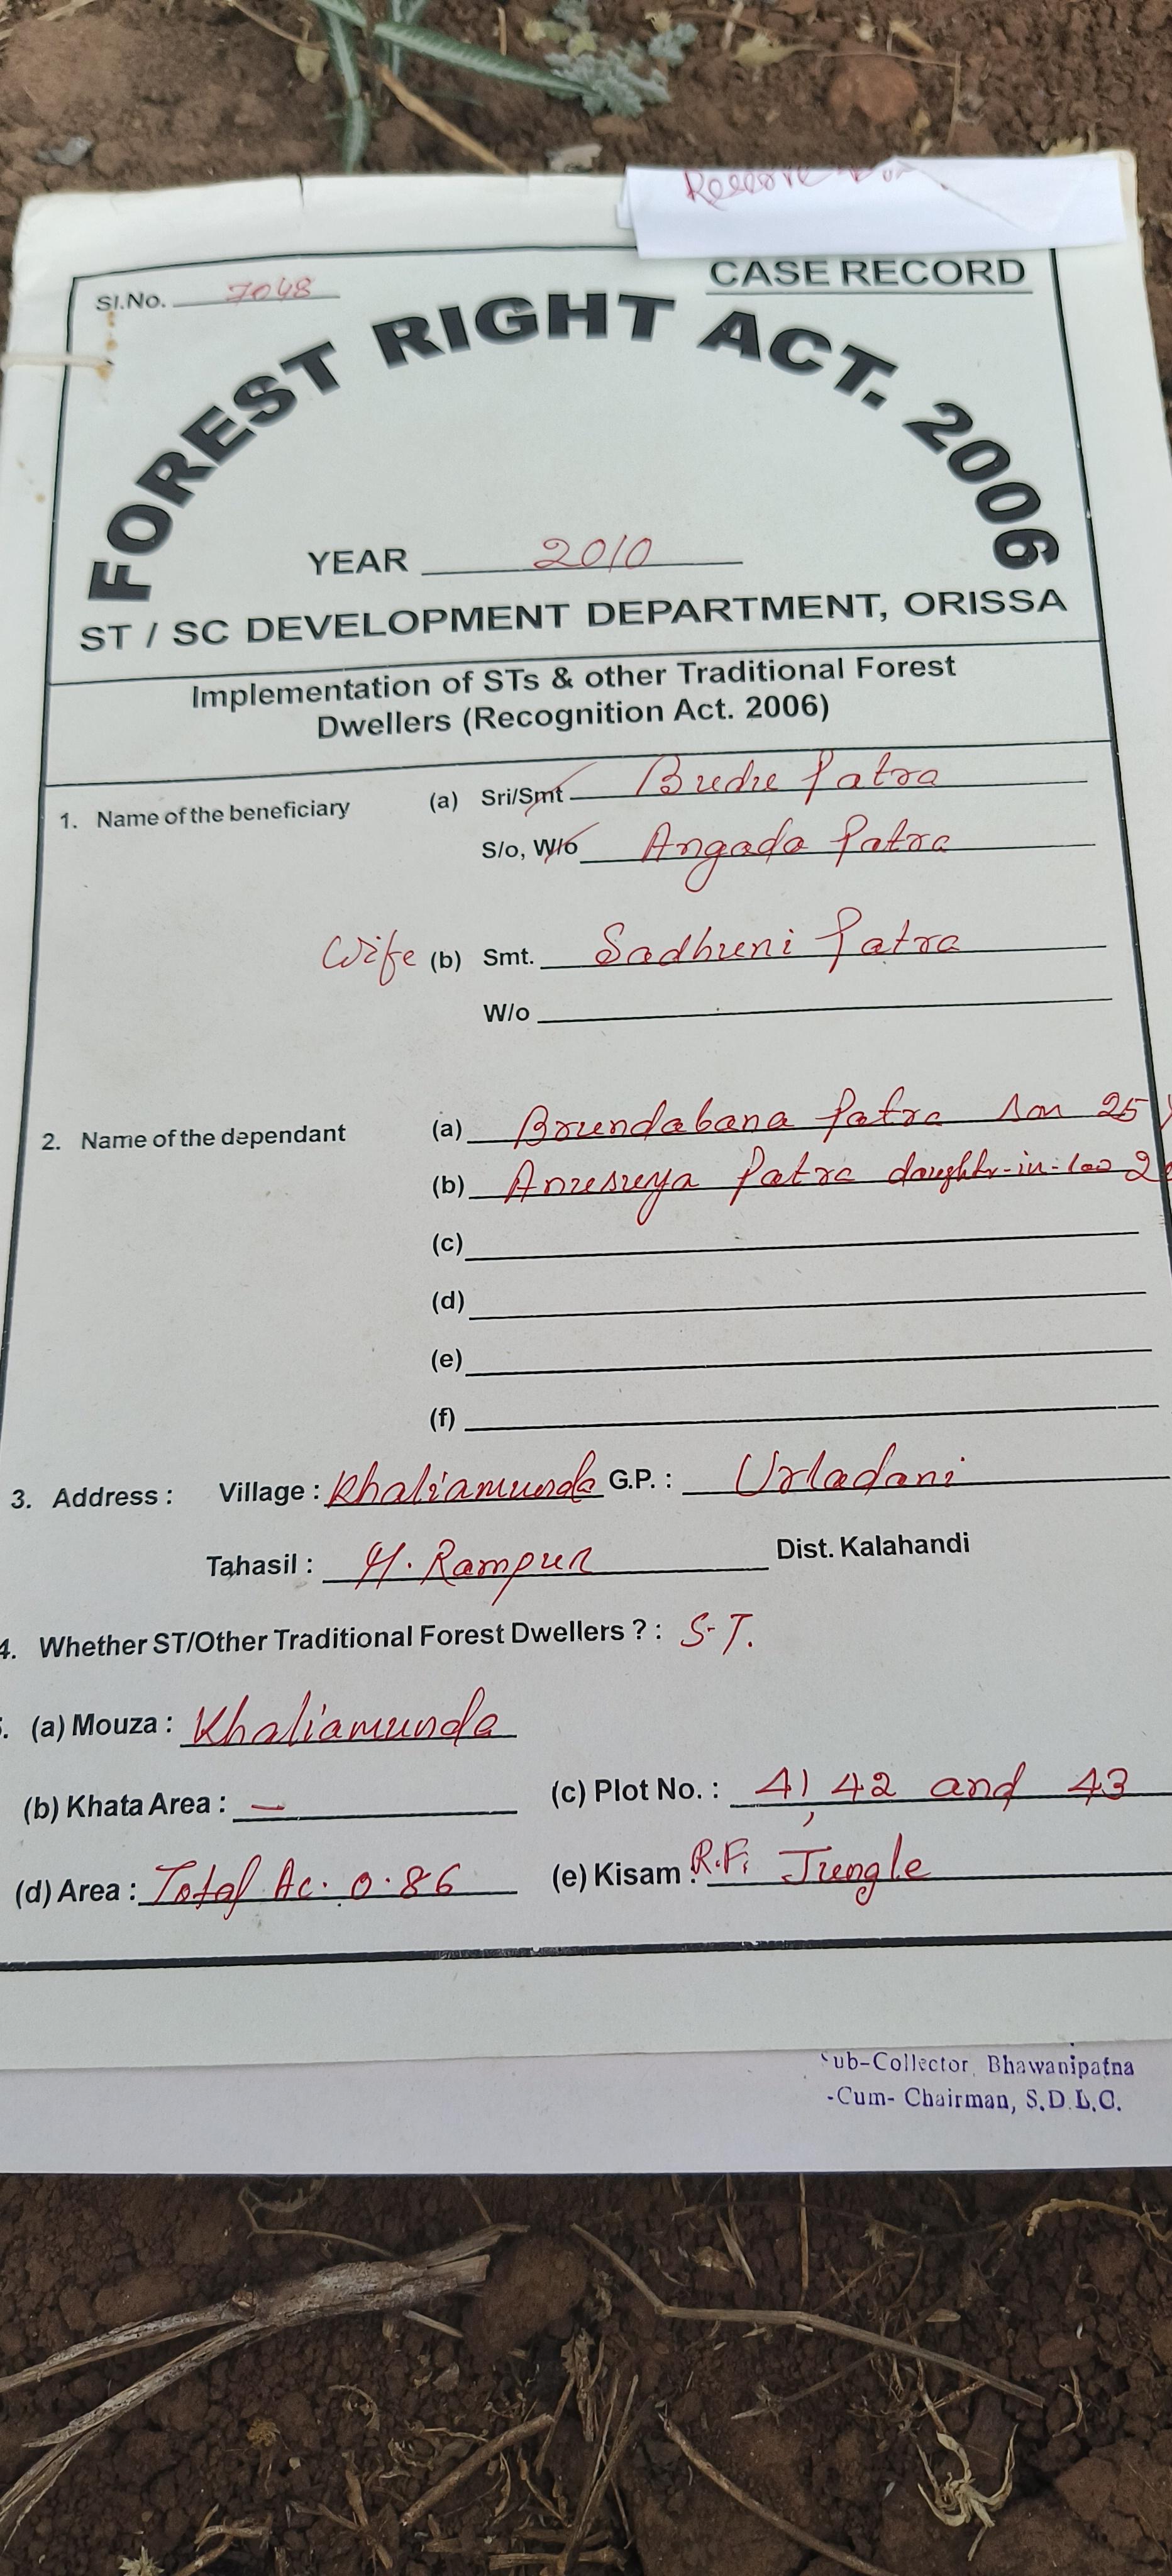 CASE RECORD
Sl.No. 7048
FOREST RIGHT ACT. 2006
YEAR 2010
ST / SC DEVELOPMENT DEPARTMENT, ORISSA
Implementation of STs & other Traditional Forest
Dwellers (Recognition Act. 2006)
1. Name of the beneficiary (a) Sri/Smt Budu Patra
S/o, W/o Angada Patra
Wife (b) Smt. Sadhuni Patra
W/o
2. Name of the dependant (a) Brundabana Patra son 25
(b) Anusuya Patra daughter-in-law
(c)
(d)
(e)
(f)
3. Address : Village : Khaliamunda G.P. : Urladani
Tahasil : M. Rampur Dist. Kalahandi
4. Whether ST/Other Traditional Forest Dwellers ? : S.T.
(a) Mouza : Khaliamunda
(b) Khata Area : — (c) Plot No. : 41, 42 and 43
(d) Area : Total Ac. 0.86 (e) Kisam : R.F. Jungle
Sub-Collector, Bhawanipatna
-Cum- Chairman, S.D.L.C.